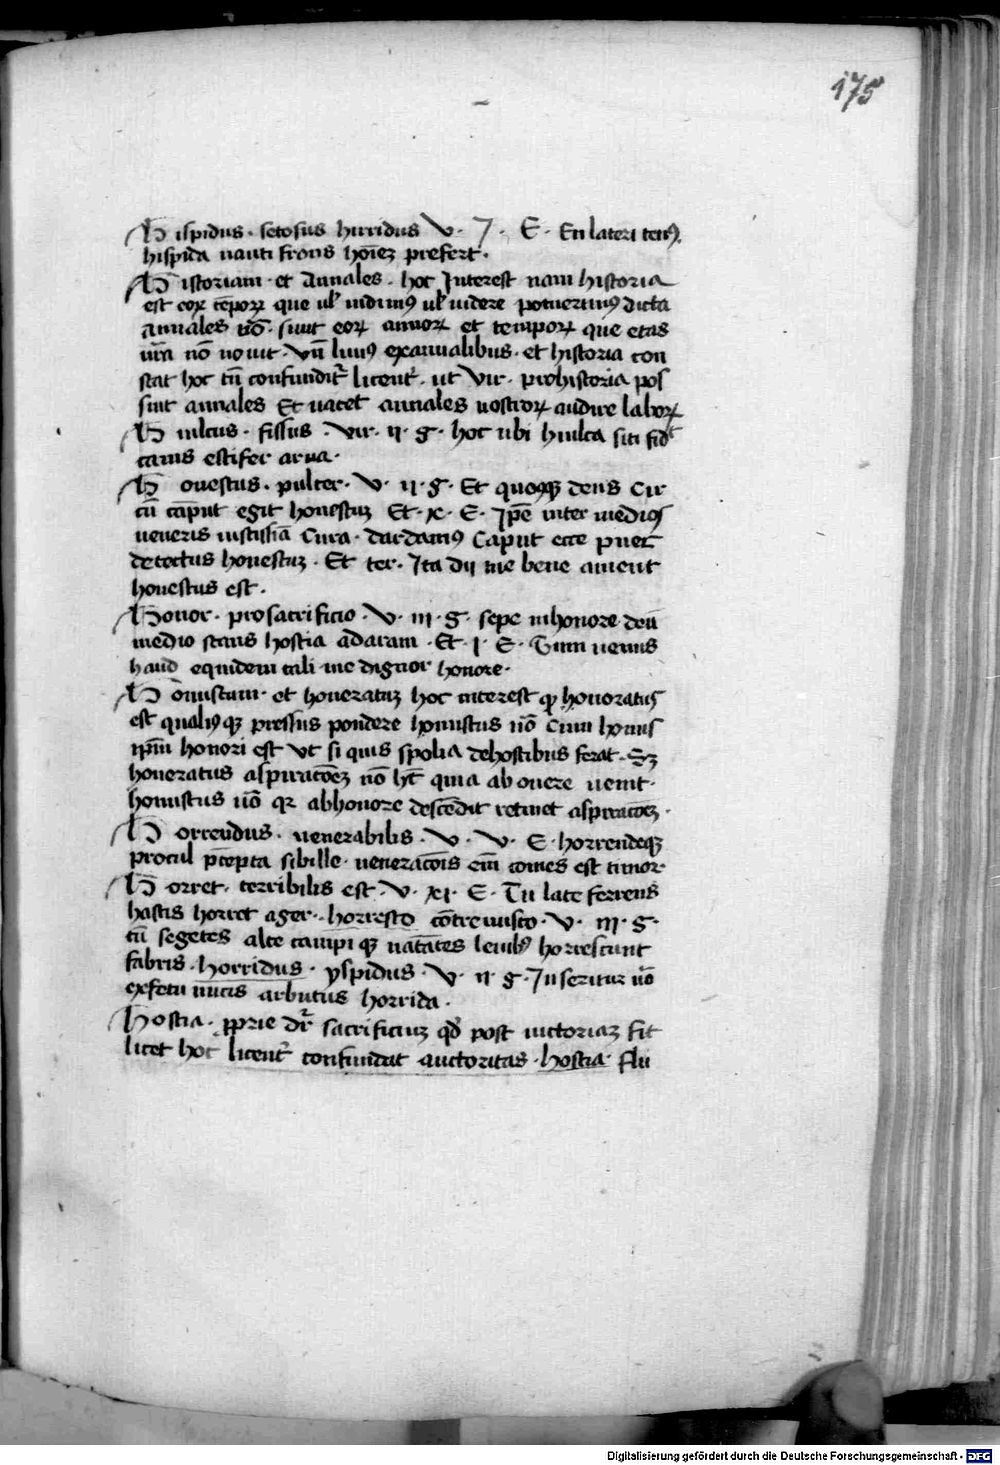 175
Hispidus · setosus hirridus v · J · E · En lateri tenꝰ
hispida nanti frons hoīeꝫ prefert ·
Historiam · et Annales · hoc Interest nam historia
est eoꝝ tēpoꝝ que ul̕ uidimꝰ ul̕ uidere potuerimꝰ dicta
annales uō · sunt eoꝝ annoꝝ et tempoꝝ que etas
nr̄a nō nouit · vn̄ liuiꝰ exannalibus · et historia con
stat hoc tn̄ confundit᷑ licent᷑ · ut Vir · prohistoria pos
suit annales Et uacet annales nostroꝝ audire laboꝝ
Hiulcus · fissus · Vir · ii · G · hoc ubi hiulca siti fid᷑
canis estifer arua ·
Honestus · pulcer · v · ii · G · Et quoqꝫ deus Cir
cū caput egit honestuꝫ Et · x · E · Ip̄e inter medios
veneris iustissīā Cura · dardaniꝰ Caput ecce puer
detectus honestuꝫ · Et ter · Ita dij me bene ament
honestus est ·
Honor · prosacrificio · v · iii · G · sepe inhonore deū
medio stans hostia adaram · Et · i · E · Tum uenus
haud equidem tali me dignor honore ·
Honustum · et honeratuꝫ hoc interest ꝙ honoratus
est qualiꝰqꝫ pressus pondere honustus uō Cum honus
ip̄m honori est vt si quis spolia dehostibus ferat · Sꝫ
honeratus aspiracōeꝫ nō hꝫ quia ab onere uenit ·
honustus uō qꝛ abhonore descēdit retinet aspiracōeꝫ ·
Horrendus · uenerabilis · v · v · E · horrendeqꝫ
procul p̄cepta sibille · ueneracōis em̄ comes est timor
Horret · terribilis est · v · xi · E · Tū late ferreus
hastis horret ager · horresco cōtremisco · v · iii · G ·
tū segetes alte campi qꝫ natātes lenibꝰ horrescunt
fabris · horridus · yspidus · v · ii · G · Inseritur uō
exfetu nucis arbutus horrida ·
Hostia · ꝓprie dr̄ sacrificiuꝫ qd̕ post uictoriaꝫ fit
licet hoc licent᷑ confundat auctoritas · hostia · flu
Digitalisierung gefördert durch die Deutsche Forschungsgemeinschaft - DFG